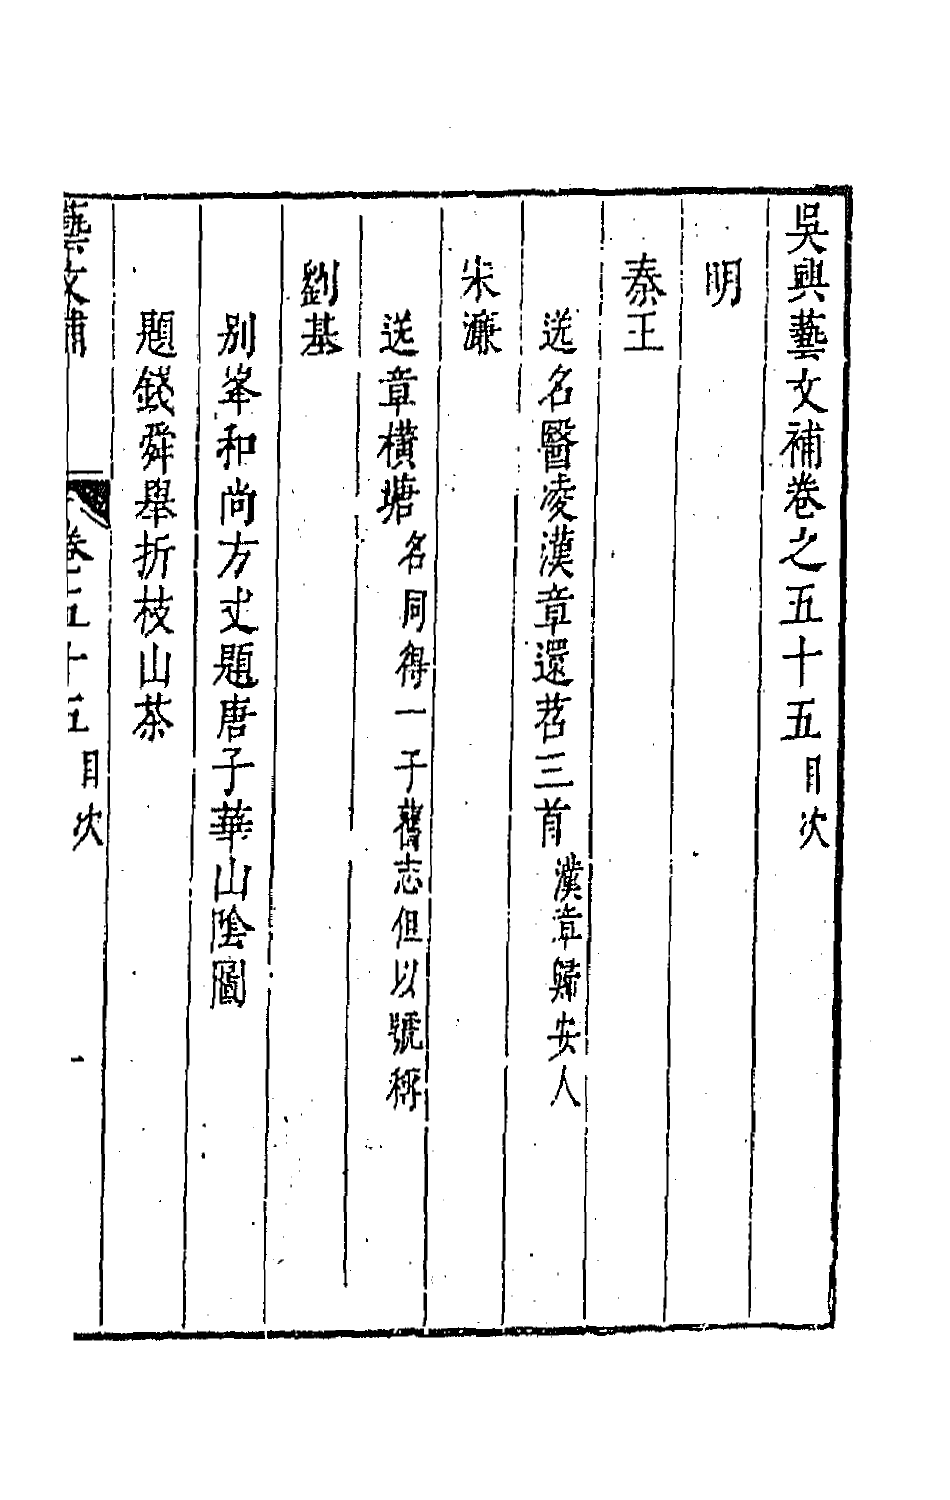 吳興藝文補卷之五十五目次
明
秦王
送名醫凌漢章還苕三首漢章歸安人
宋濂
送章橫塘名同得一于舊志但以號稱
劉基
別峯和尚方丈題唐子華山陰圖
題錢舜舉折枝山茶
藝文補 卷五十五目次 一